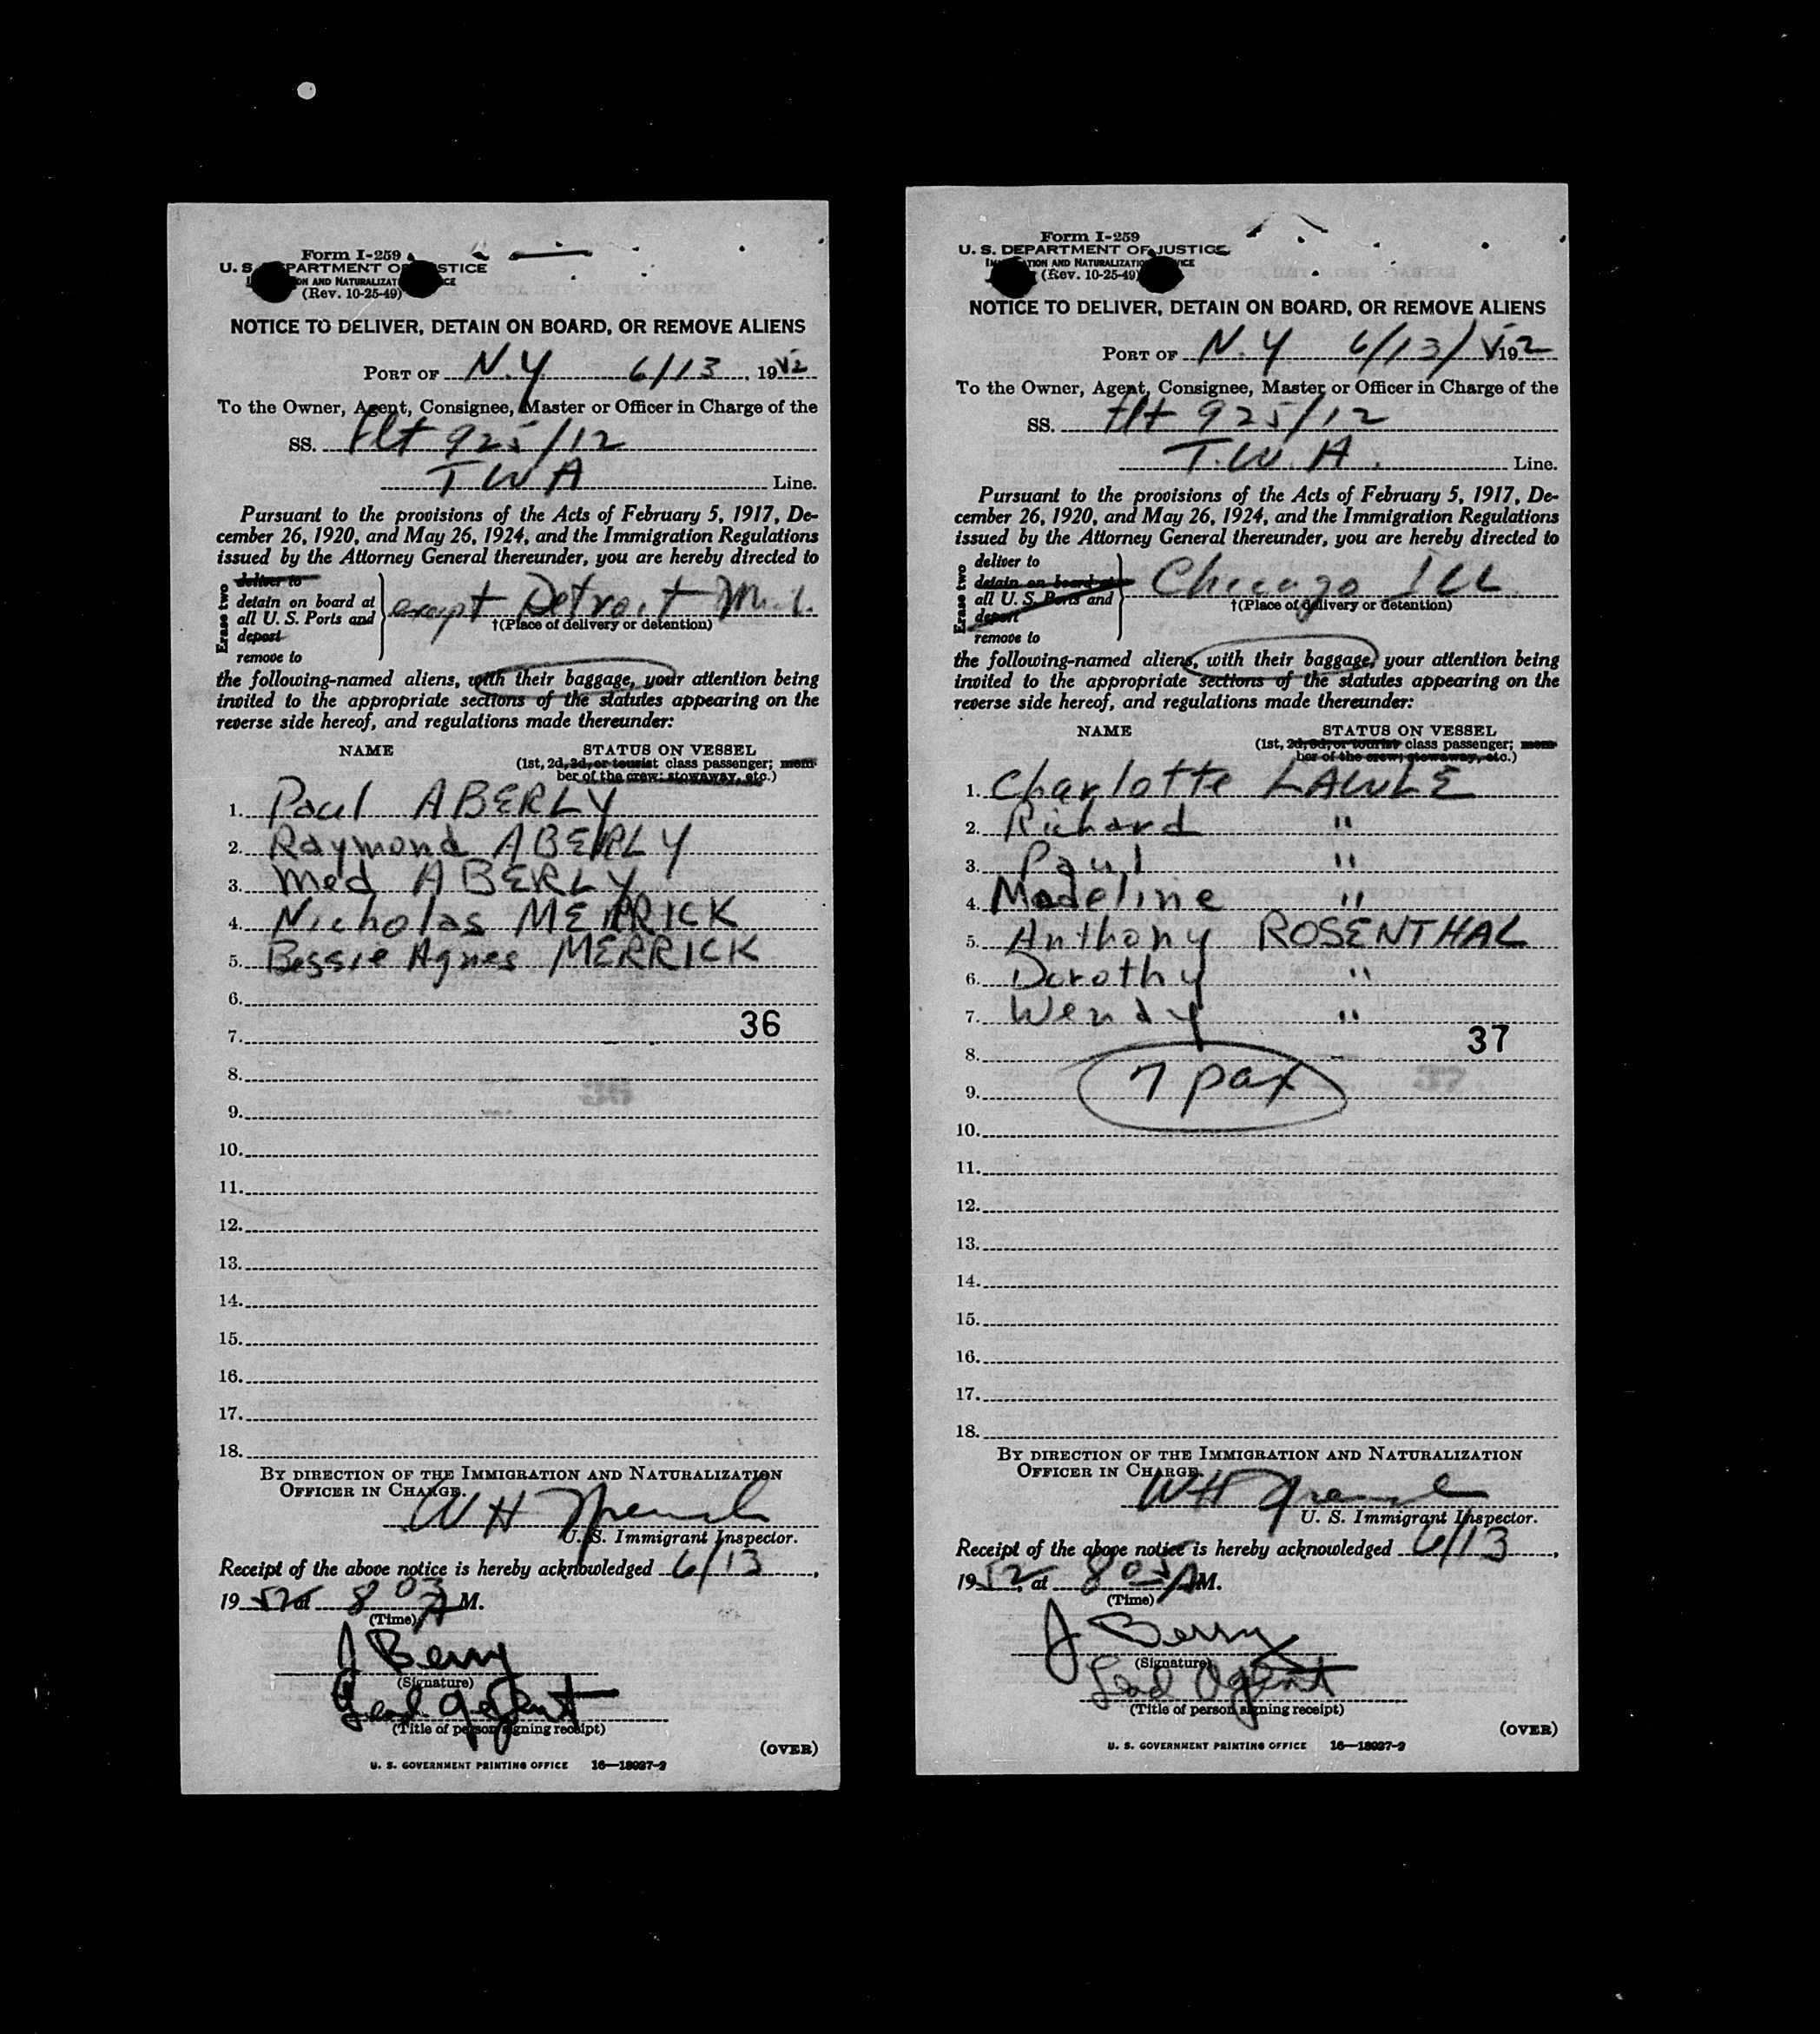 Form I-259
U. S. DEPARTMENT OF JUSTICE
IMMIGRATION AND NATURALIZATION SERVICE
(Rev. 10-25-49)
NOTICE TO DELIVER, DETAIN ON BOARD, OR REMOVE ALIENS
PORT OF N.Y 6/13, 1952
To the Owner, Agent, Consignee, Master or Officer in Charge of the
SS. Flt 925/12
T W A Line.
Pursuant to the provisions of the Acts of February 5, 1917, De-
cember 26, 1920, and May 26, 1924, and the Immigration Regulations
issued by the Attorney General thereunder, you are hereby directed to
Erase two
deliver to
detain on board at
all U. S. Ports and
deport
remove to
except Detroit Mich.
†(Place of delivery or detention)
the following-named aliens, with their baggage, your attention being
invited to the appropriate sections of the statutes appearing on the
reverse side hereof, and regulations made thereunder:
NAME STATUS ON VESSEL
(1st, 2d, 3d, or tourist class passenger; mem-
ber of the crew; stowaway, etc.)
1. Paul ABERLY
2. Raymond ABERLY
3. Med ABERLY
4. Nicholas MERRICK
5. Bessie Agnes MERRICK
6.
36
7.
8.
9.
10.
11.
12.
13.
14.
15.
16.
17.
18.
BY DIRECTION OF THE IMMIGRATION AND NATURALIZATION
OFFICER IN CHARGE.
W H
U. S. Immigrant Inspector.
Receipt of the above notice is hereby acknowledged 6/13,
1952 at 8 03 A M.
(Time)
J Berry
(Signature)
Lead Agent
(Title of person signing receipt)
(OVER)
U. S. GOVERNMENT PRINTING OFFICE 16—18927-2
Form I-259
U. S. DEPARTMENT OF JUSTICE
IMMIGRATION AND NATURALIZATION SERVICE
(Rev. 10-25-49)
NOTICE TO DELIVER, DETAIN ON BOARD, OR REMOVE ALIENS
PORT OF N.Y 6/13/ 1952
To the Owner, Agent, Consignee, Master or Officer in Charge of the
SS. Flt 925/12
T.W.A. Line.
Pursuant to the provisions of the Acts of February 5, 1917, De-
cember 26, 1920, and May 26, 1924, and the Immigration Regulations
issued by the Attorney General thereunder, you are hereby directed to
Erase two
deliver to
detain on board at
all U. S. Ports and
deport
remove to
Chicago ILL.
†(Place of delivery or detention)
the following-named aliens, with their baggage, your attention being
invited to the appropriate sections of the statutes appearing on the
reverse side hereof, and regulations made thereunder:
NAME STATUS ON VESSEL
(1st, 2d, 3d, or tourist class passenger; mem-
ber of the crew; stowaway, etc.)
1. Charlotte LAWLE
2. Richard "
3. Paul "
4. Madeline "
5. Anthony ROSENTHAL
6. Dorothy "
7. Wendy "
37
8.
9. 7 pax
10.
11.
12.
13.
14.
15.
16.
17.
18.
BY DIRECTION OF THE IMMIGRATION AND NATURALIZATION
OFFICER IN CHARGE.
WH
U. S. Immigrant Inspector.
Receipt of the above notice is hereby acknowledged 6/13,
1952, at 8 03 A M.
(Time)
J Berry
(Signature)
Lead Agent
(Title of person signing receipt)
(OVER)
U. S. GOVERNMENT PRINTING OFFICE 16—18927-2